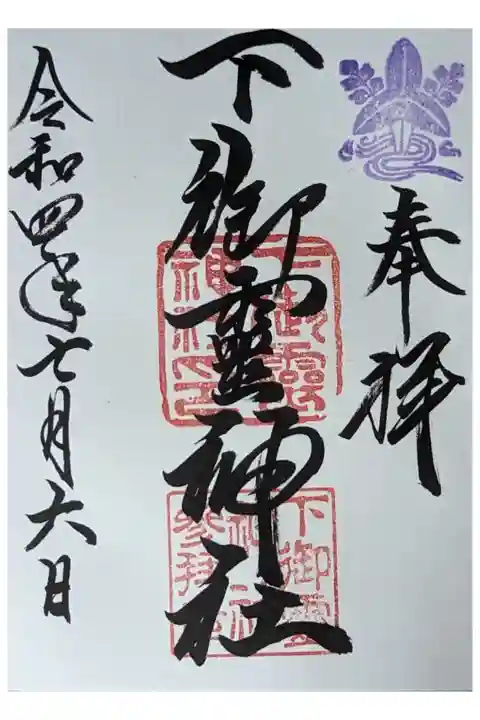 奉拝
下御霊神社
令和四年七月六日
下御霊神社印
下御霊神社参拝